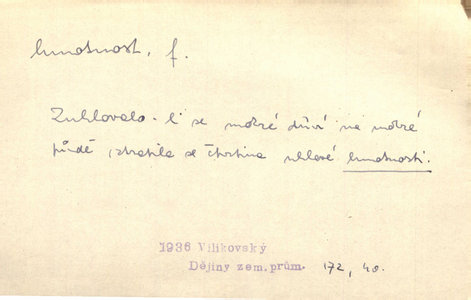 hmotnost, f.
Zuhlovalo-li se mokré dříví na mokré
půdě, ztratila se čtvrtina uhlové hmotnosti.
1936 Vilikovský
Dějiny zem. prům. 172, 40.